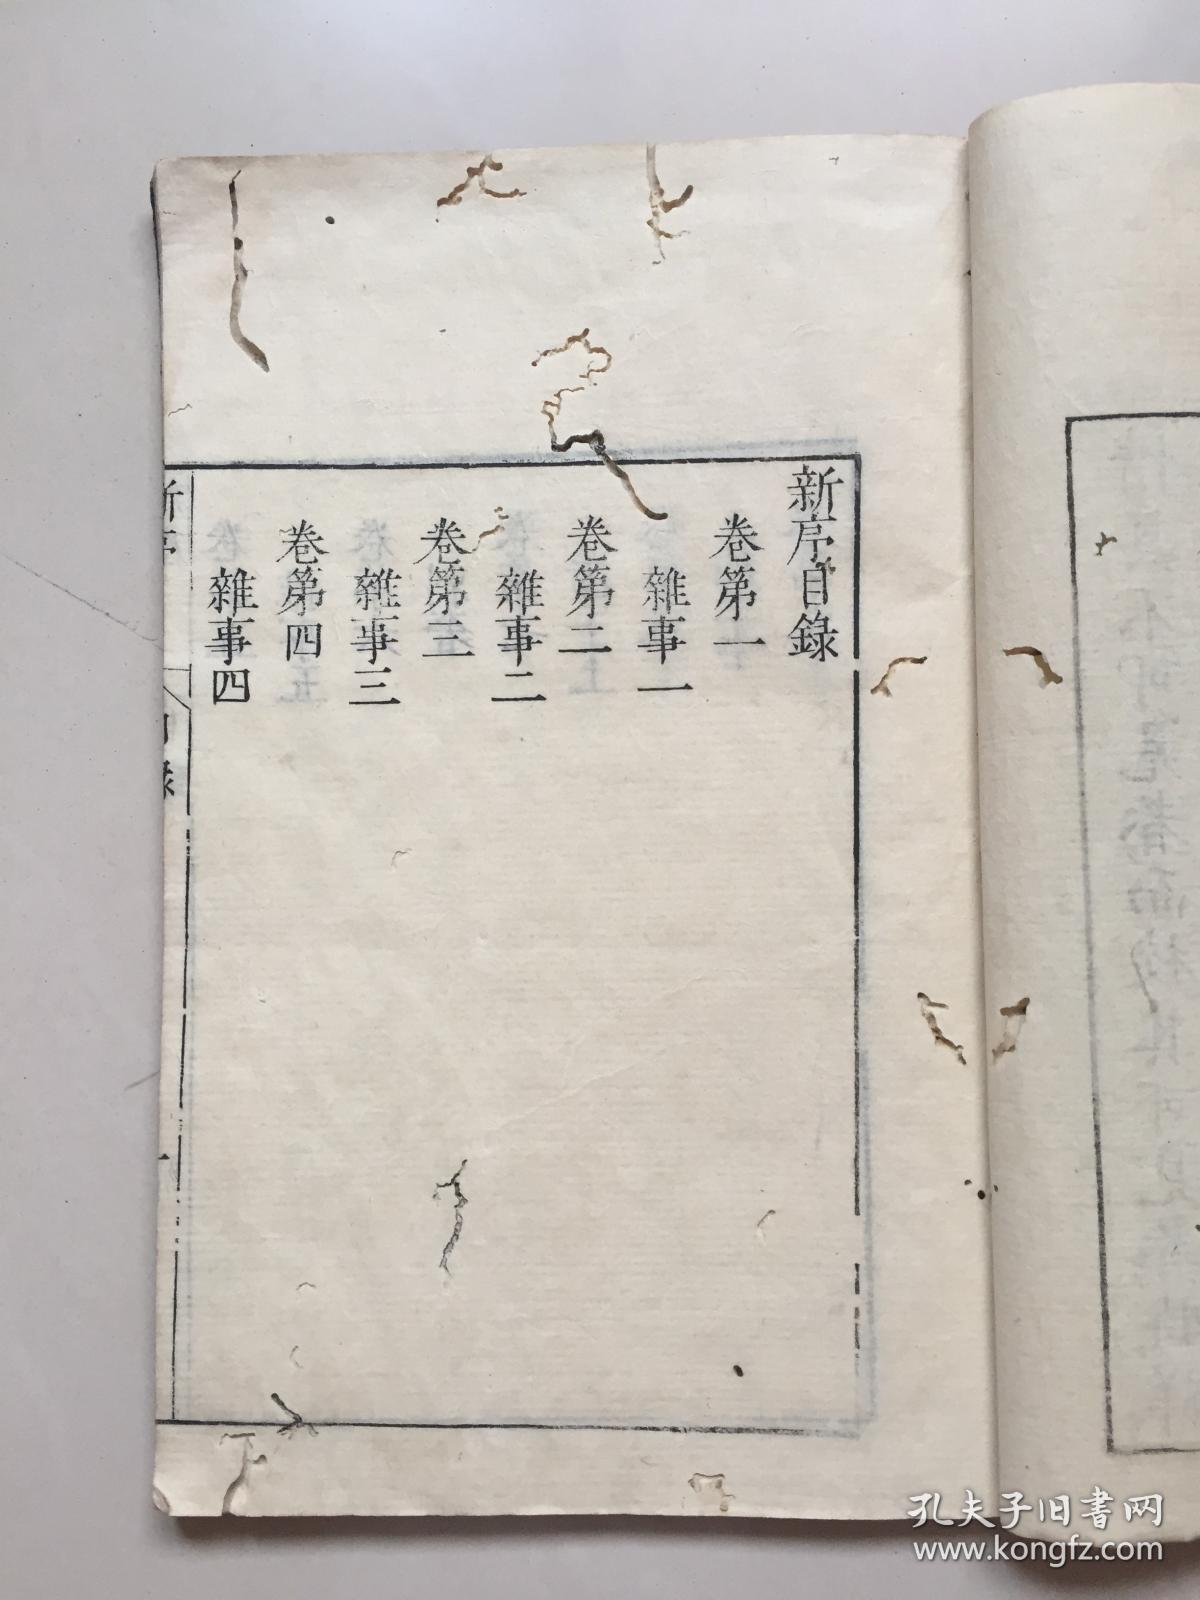 新序目錄
卷第一
雜事一
卷第二
雜事二
卷第三
雜事三
卷第四
雜事四
新序
目錄
一
孔夫子旧书网
www.kongfz.com